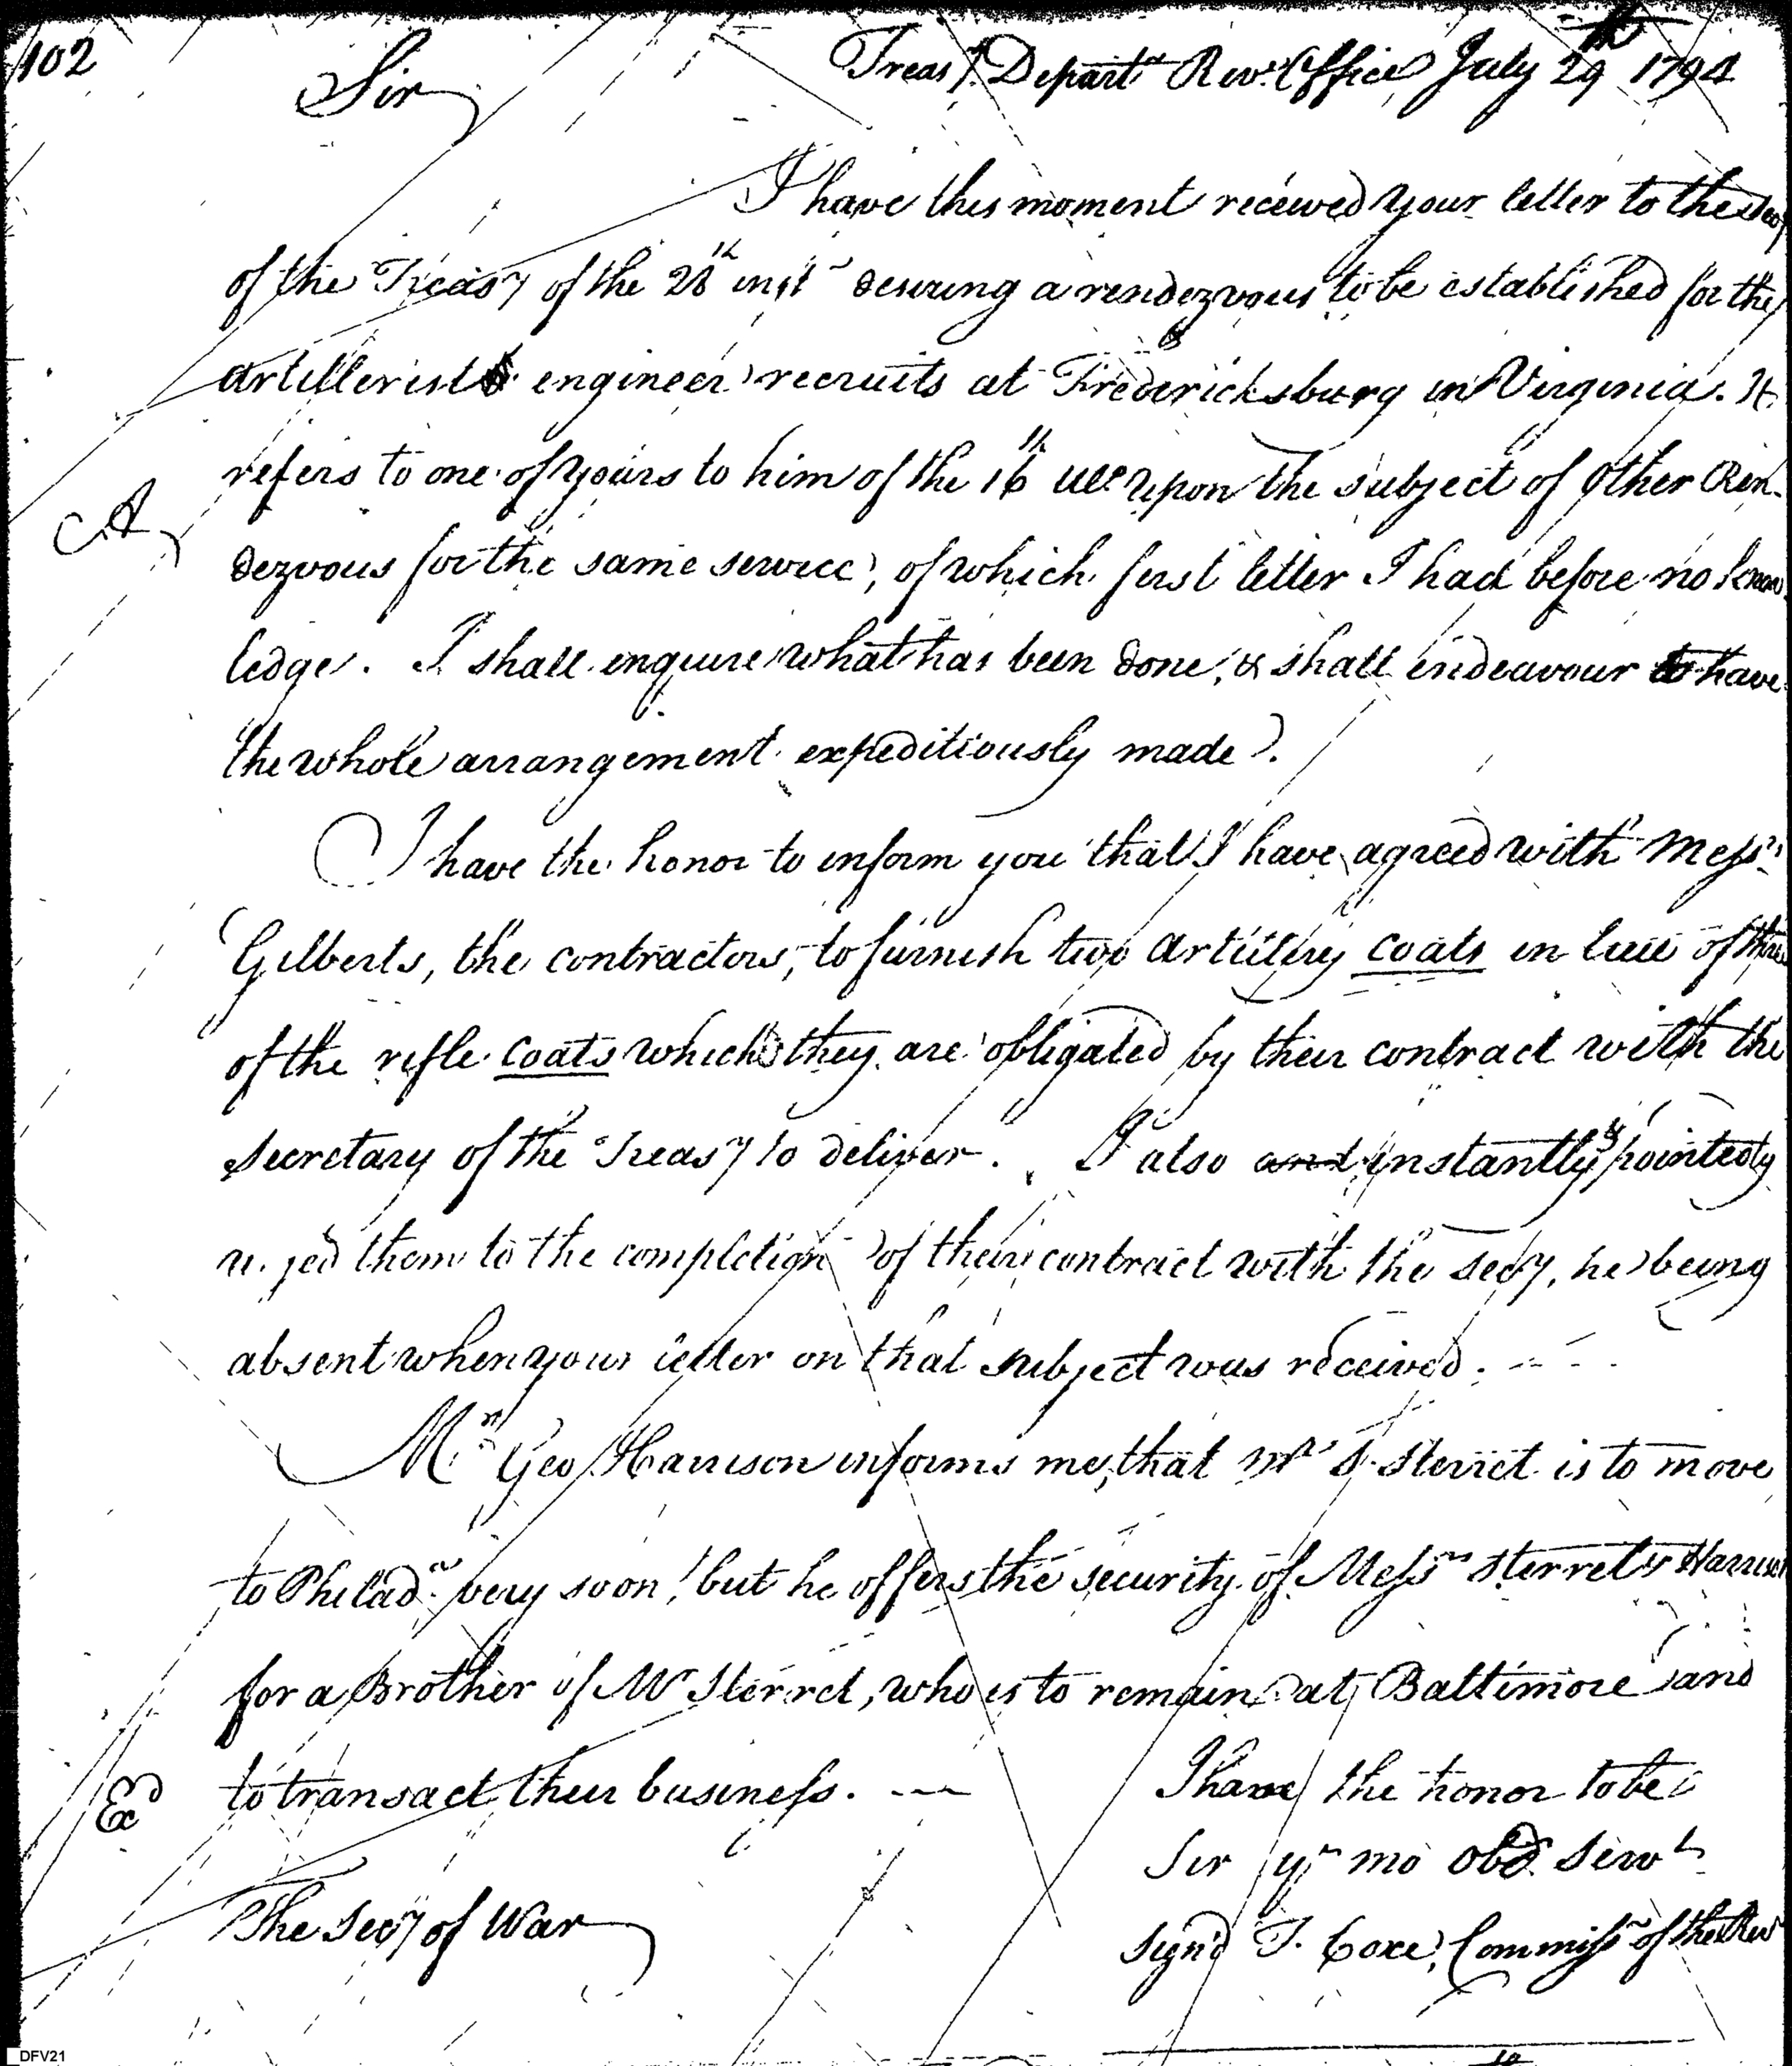 102
Treasy Departt Revs Office July 29th 1794
Sir
I have this moment received your letter to the Secy
of the Treasy of the 28th inst desiring a rendezvous to be established for the
Artillerist & engineer recruits at Fredericksburg in Virginia. It
refers to one of yours to him of the 16th ulto upon the subject of other Ren-
dezvous for the same service, of which first letter I had before no know
ledge. I shall enquire what has been done, & shall endeavour to have
the whole arrangement expeditiously made.
I have the honor to inform you that I have agreed with Messrs
Gilberts, the contractors, to furnish two Artillery coats in lieu of three
of the rifle coats which they are obligated by their contract with the
Secretary of the Treasy to deliver. I also and instantly & pointedly
urged them to the completion of their contract with the Secy, he being
absent when your letter on that subject was received.
Mr Geo Harrison informs me, that Mr S. Sterret is to move
to Philada very soon, but he offers the security of Messrs Sterret & Harrison
for a Brother of Mr Sterret, who is to remain at Baltimore and
to transact their business.
I have the honor to be
Exd
Sir yr mo obd Servt
The Secy of War
Sign'd T. Coxe, Commissr of the Rev
DFV21